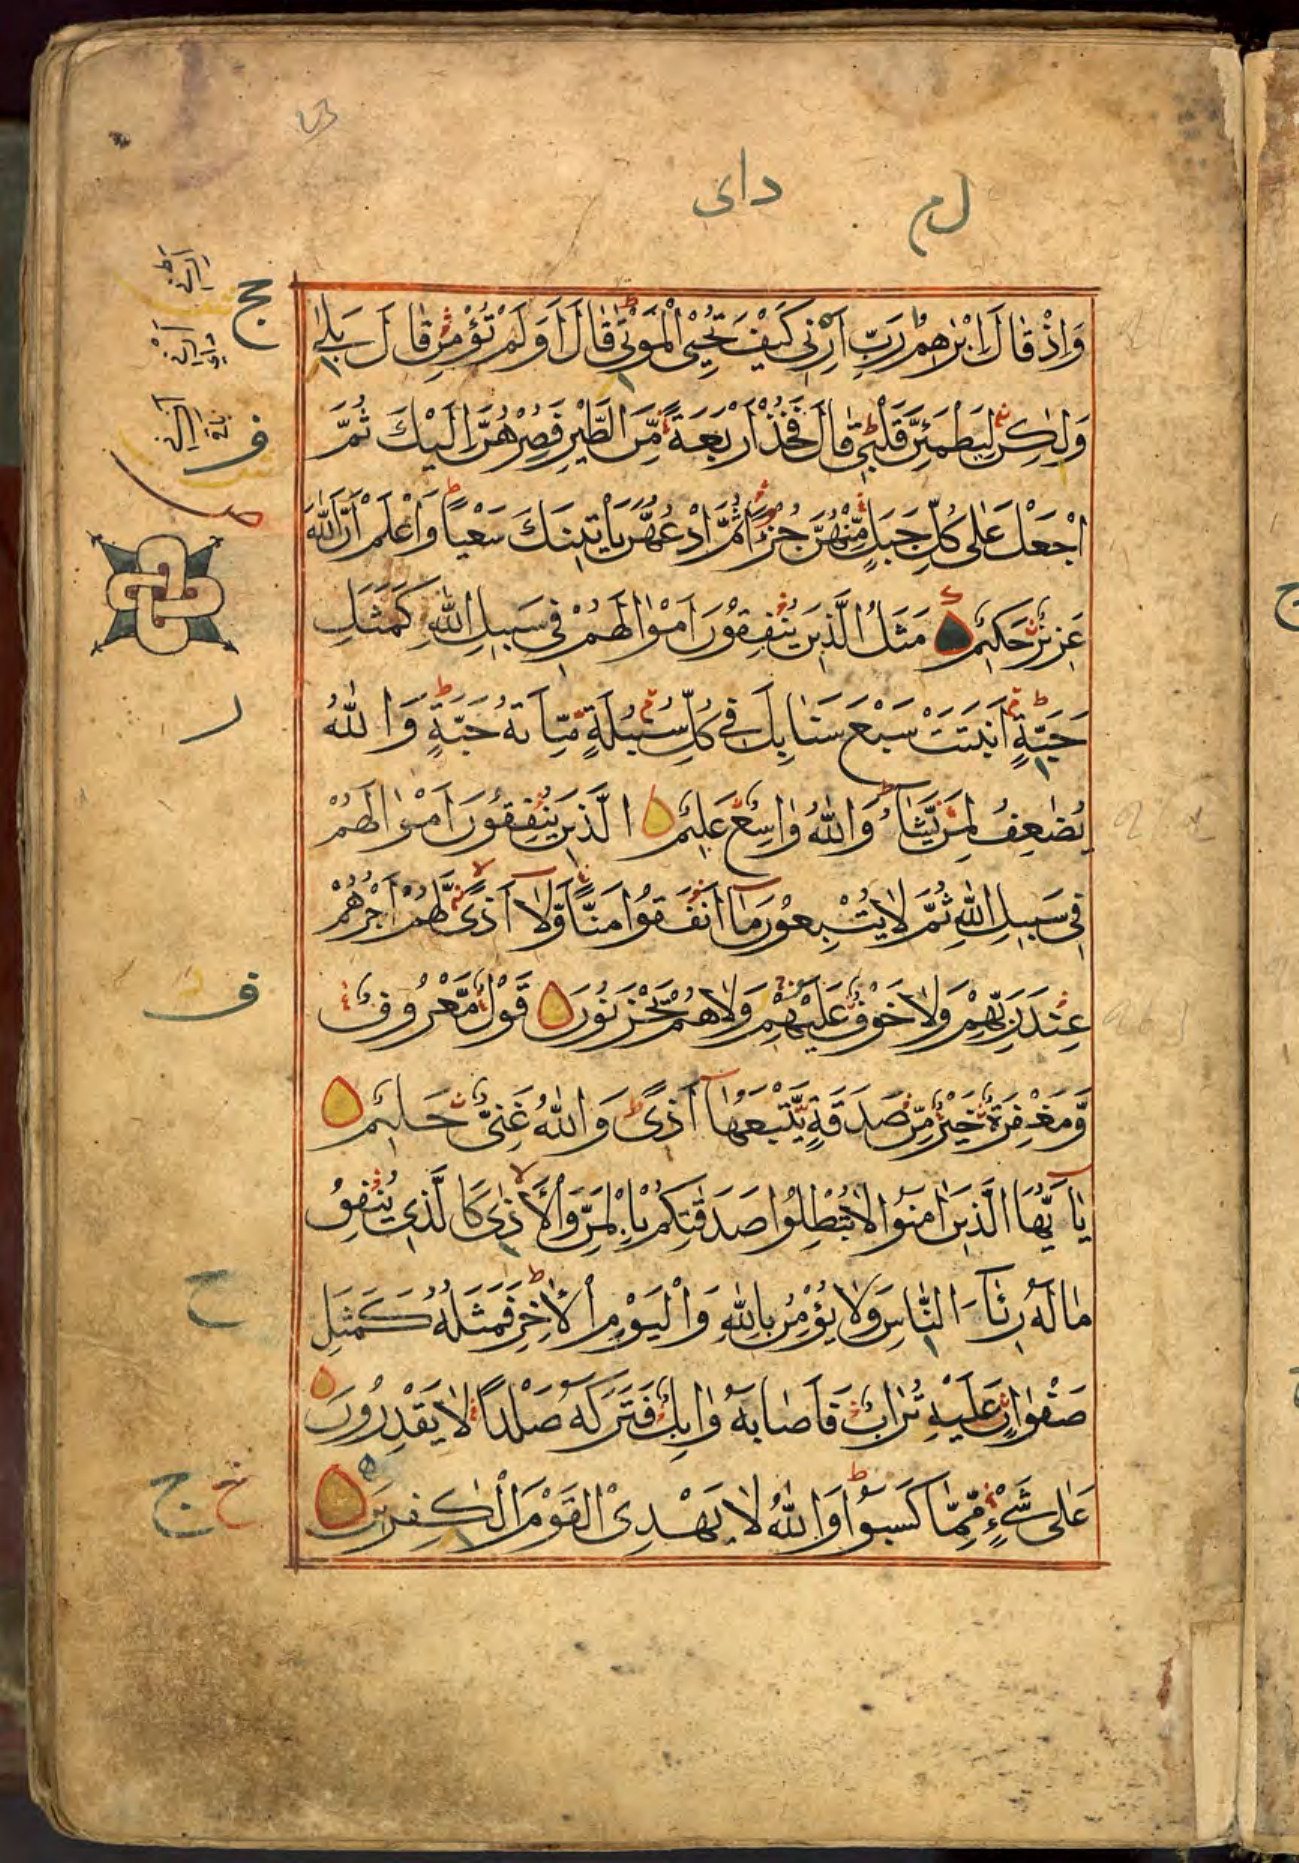 دای
ل م
وَاِذْ قَالَ اِبْرٰهٖمُ رَبِّ اَرِنِيْ كَيْفَ تُحْيِ الْمَوْتٰى قَالَ اَوَلَمْ تُؤْمِنْ قَالَ بَلٰى
وَلٰكِنْ لِيَطْمَئِنَّ قَلْبِيْ قَالَ فَخُذْ اَرْبَعَةً مِّنَ الطَّيْرِ فَصُرْهُنَّ اِلَيْكَ ثُمَّ
اجْعَلْ عَلٰى كُلِّ جَبَلٍ مِّنْهُنَّ جُزْءًا ثُمَّ ادْعُهُنَّ يَاْتِيْنَكَ سَعْيًا وَاعْلَمْ اَنَّ اللّٰهَ
عَزِيْزٌ حَكِيْمٌ مَثَلُ الَّذِيْنَ يُنْفِقُوْنَ اَمْوَالَهُمْ فِيْ سَبِيْلِ اللّٰهِ كَمَثَلِ
حَبَّةٍ اَنْبَتَتْ سَبْعَ سَنَابِلَ فِيْ كُلِّ سُنْبُلَةٍ مِّائَةُ حَبَّةٍ وَاللّٰهُ
يُضٰعِفُ لِمَنْ يَّشَاءُ وَاللّٰهُ وَاسِعٌ عَلِيْمٌ الَّذِيْنَ يُنْفِقُوْنَ اَمْوَالَهُمْ
فِيْ سَبِيْلِ اللّٰهِ ثُمَّ لَا يُتْبِعُوْنَ مَا اَنْفَقُوْا مَنًّا وَّلَا اَذًى لَّهُمْ اَجْرُهُمْ
عِنْدَ رَبِّهِمْ وَلَا خَوْفٌ عَلَيْهِمْ وَلَا هُمْ يَحْزَنُوْنَ قَوْلٌ مَّعْرُوْفٌ
وَّمَغْفِرَةٌ خَيْرٌ مِّنْ صَدَقَةٍ يَّتْبَعُهَا اَذًى وَاللّٰهُ غَنِيٌّ حَلِيْمٌ
يَا اَيُّهَا الَّذِيْنَ اٰمَنُوْا لَا تُبْطِلُوْا صَدَقٰتِكُمْ بِالْمَنِّ وَالْاَذٰى كَالَّذِيْ يُنْفِقُ
مَالَهٗ رِئَاءَ النَّاسِ وَلَا يُؤْمِنُ بِاللّٰهِ وَالْيَوْمِ الْاٰخِرِ فَمَثَلُهٗ كَمَثَلِ
صَفْوَانٍ عَلَيْهِ تُرَابٌ فَاَصَابَهٗ وَابِلٌ فَتَرَكَهٗ صَلْدًا لَا يَقْدِرُوْنَ
عَلٰى شَيْءٍ مِّمَّا كَسَبُوْا وَاللّٰهُ لَا يَهْدِى الْقَوْمَ الْكٰفِرِيْنَ
ج
ف
ص
ر
ف
ح
خ ج